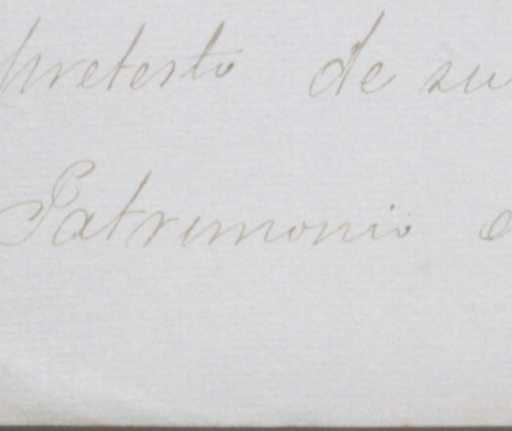 pretesto de su
Patrimonio